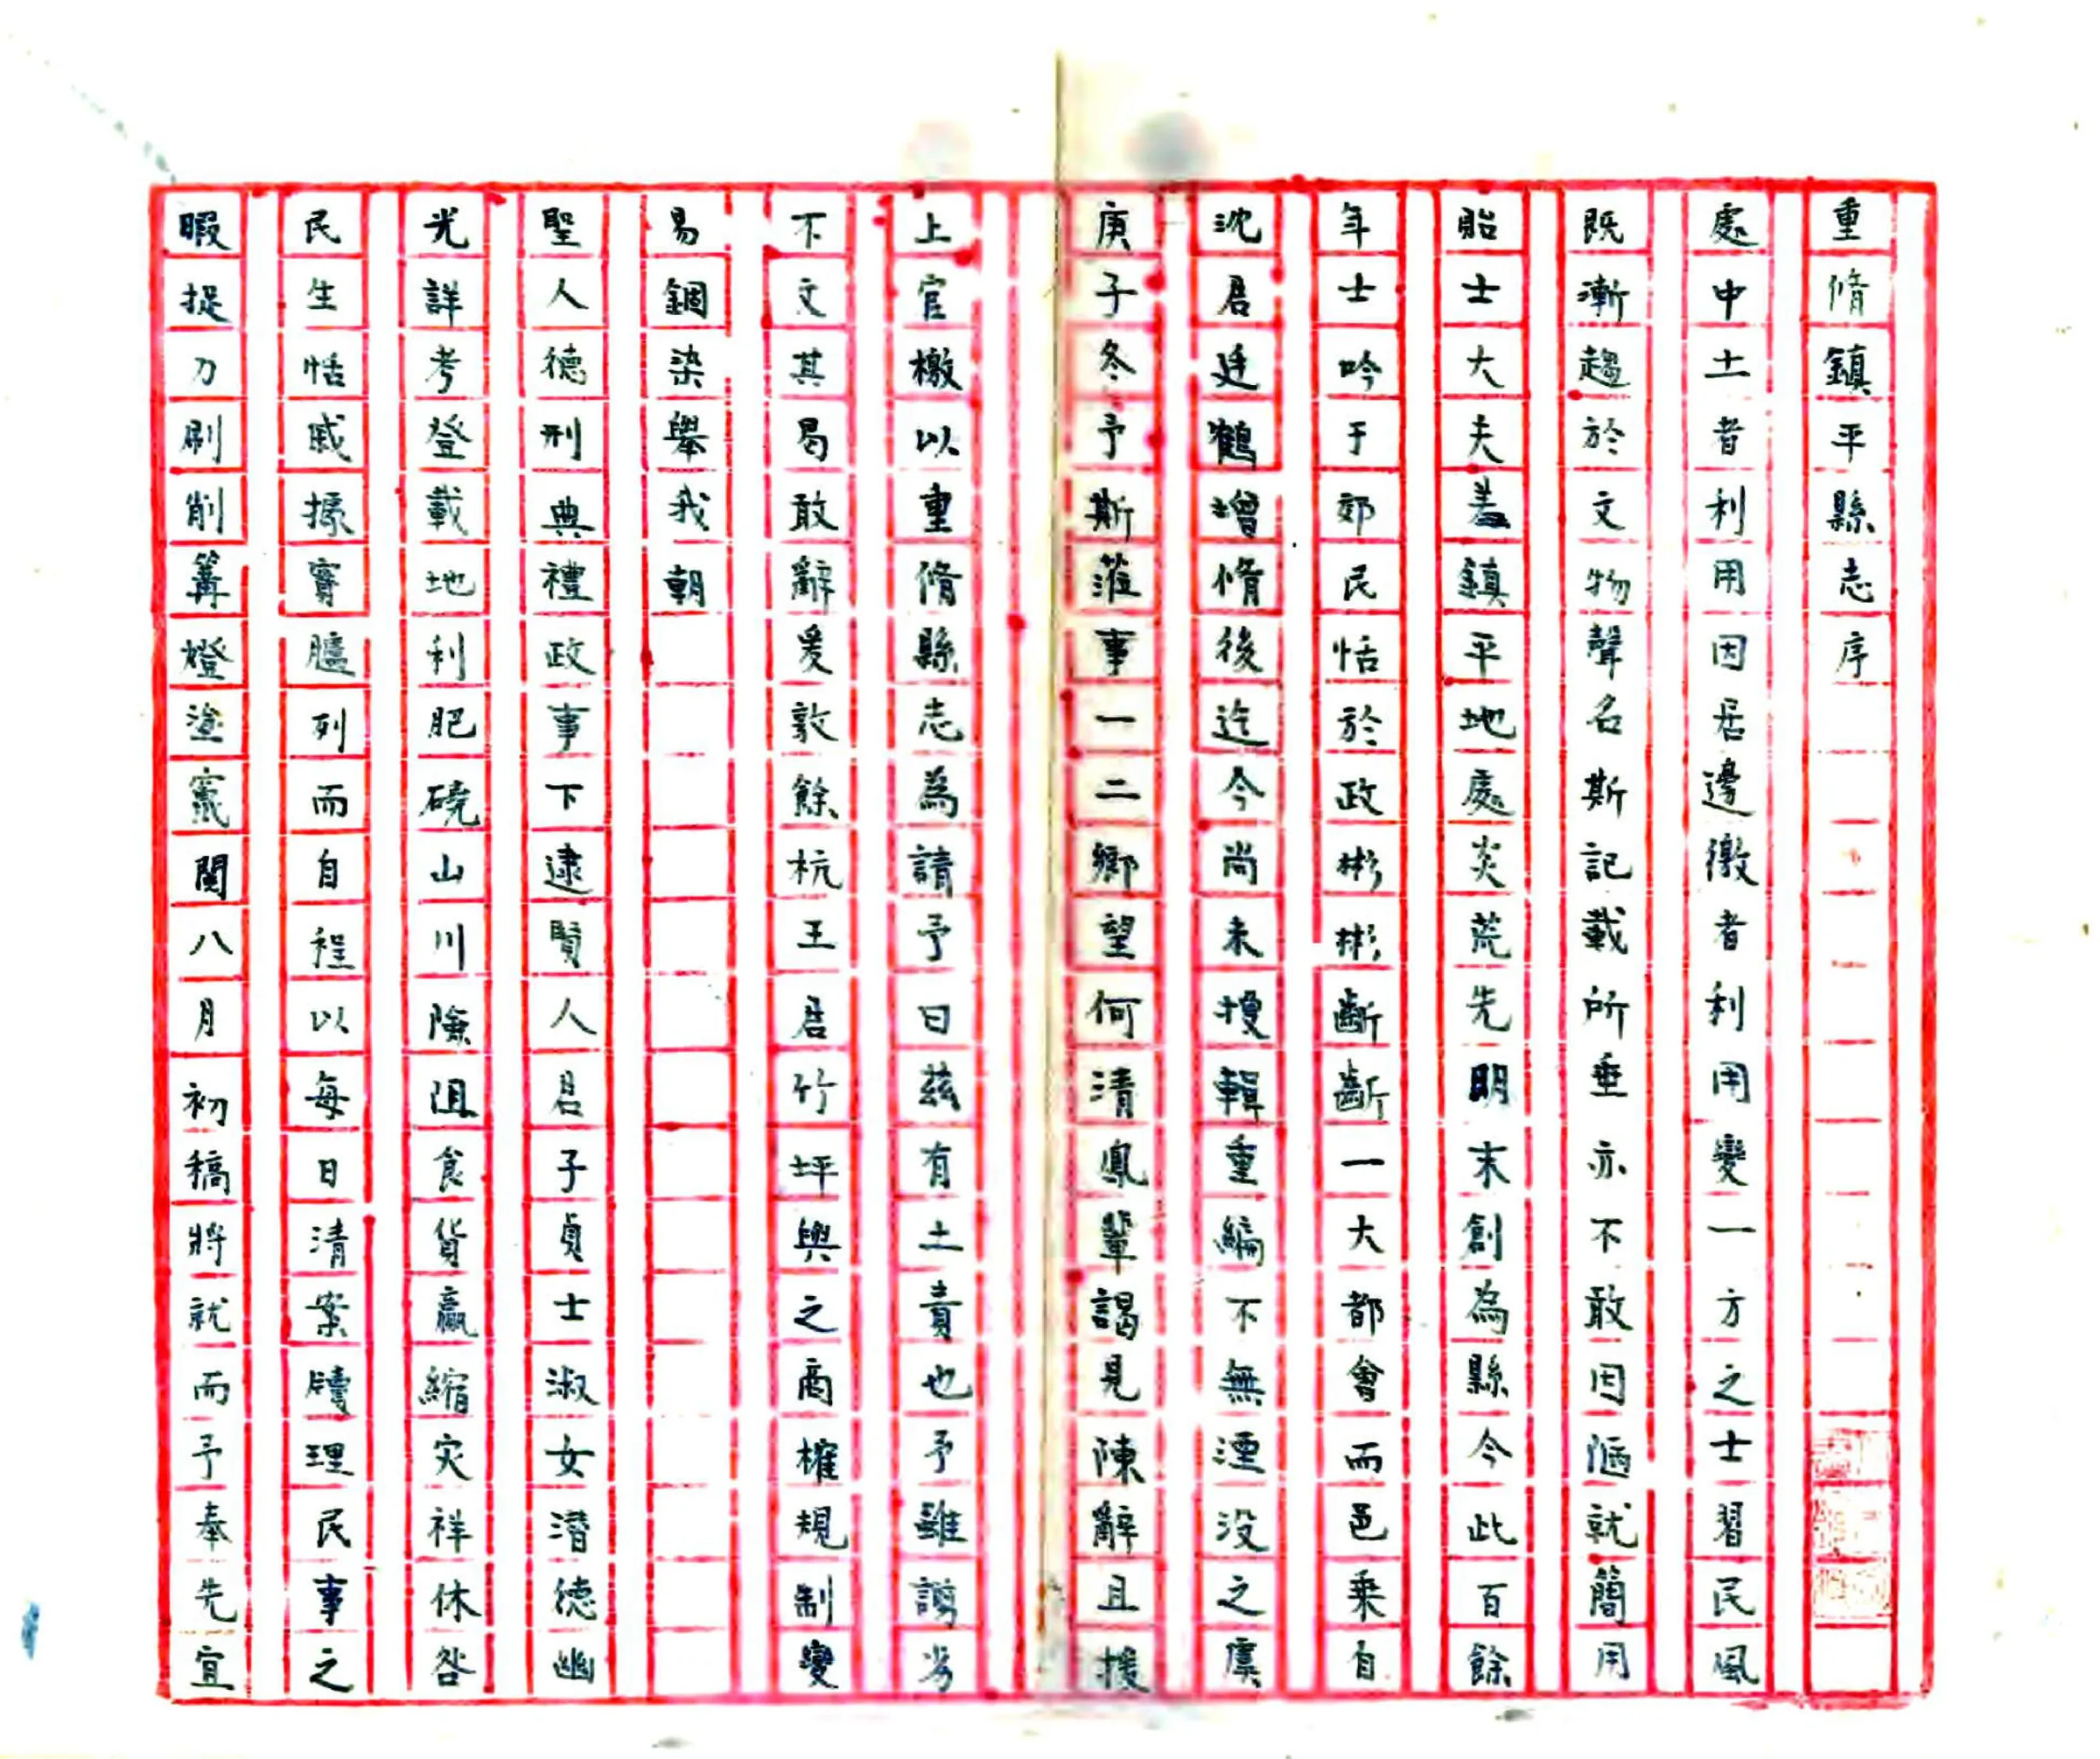 重脩鎮平縣志序
處中土者利用因居邊徼者利用變一方之士習民風
既漸趨於文物聲名斯記載所垂亦不敢因陋就簡用
貽士大夫羞鎮平地處炎荒先明末創為縣今此百餘
年士吟于郊民恬於政彬彬斷斷一大都會而邑乘自
沈君廷鶴增脩後迄今尚未搜輯重編不無湮没之虞
庚子冬予斯蒞事一二鄉望何清鳳輩謁見陳辭且援
上官檄以重脩縣志為請予曰茲有土責也予雖謭劣
不文其曷敢辭爰敦餘杭王君竹坪與之商榷規制變
易錮染舉我朝
聖人德刑典禮政事下逮賢人君子貞士淑女潛德幽
光詳考登載地利肥磽山川險阻食貨贏縮灾祥休咎
民生恬戚據實臚列而自程以每日清案牘理民事之
暇捉刀刷削篝燈塗竄閱八月初稿將就而予奉先宜